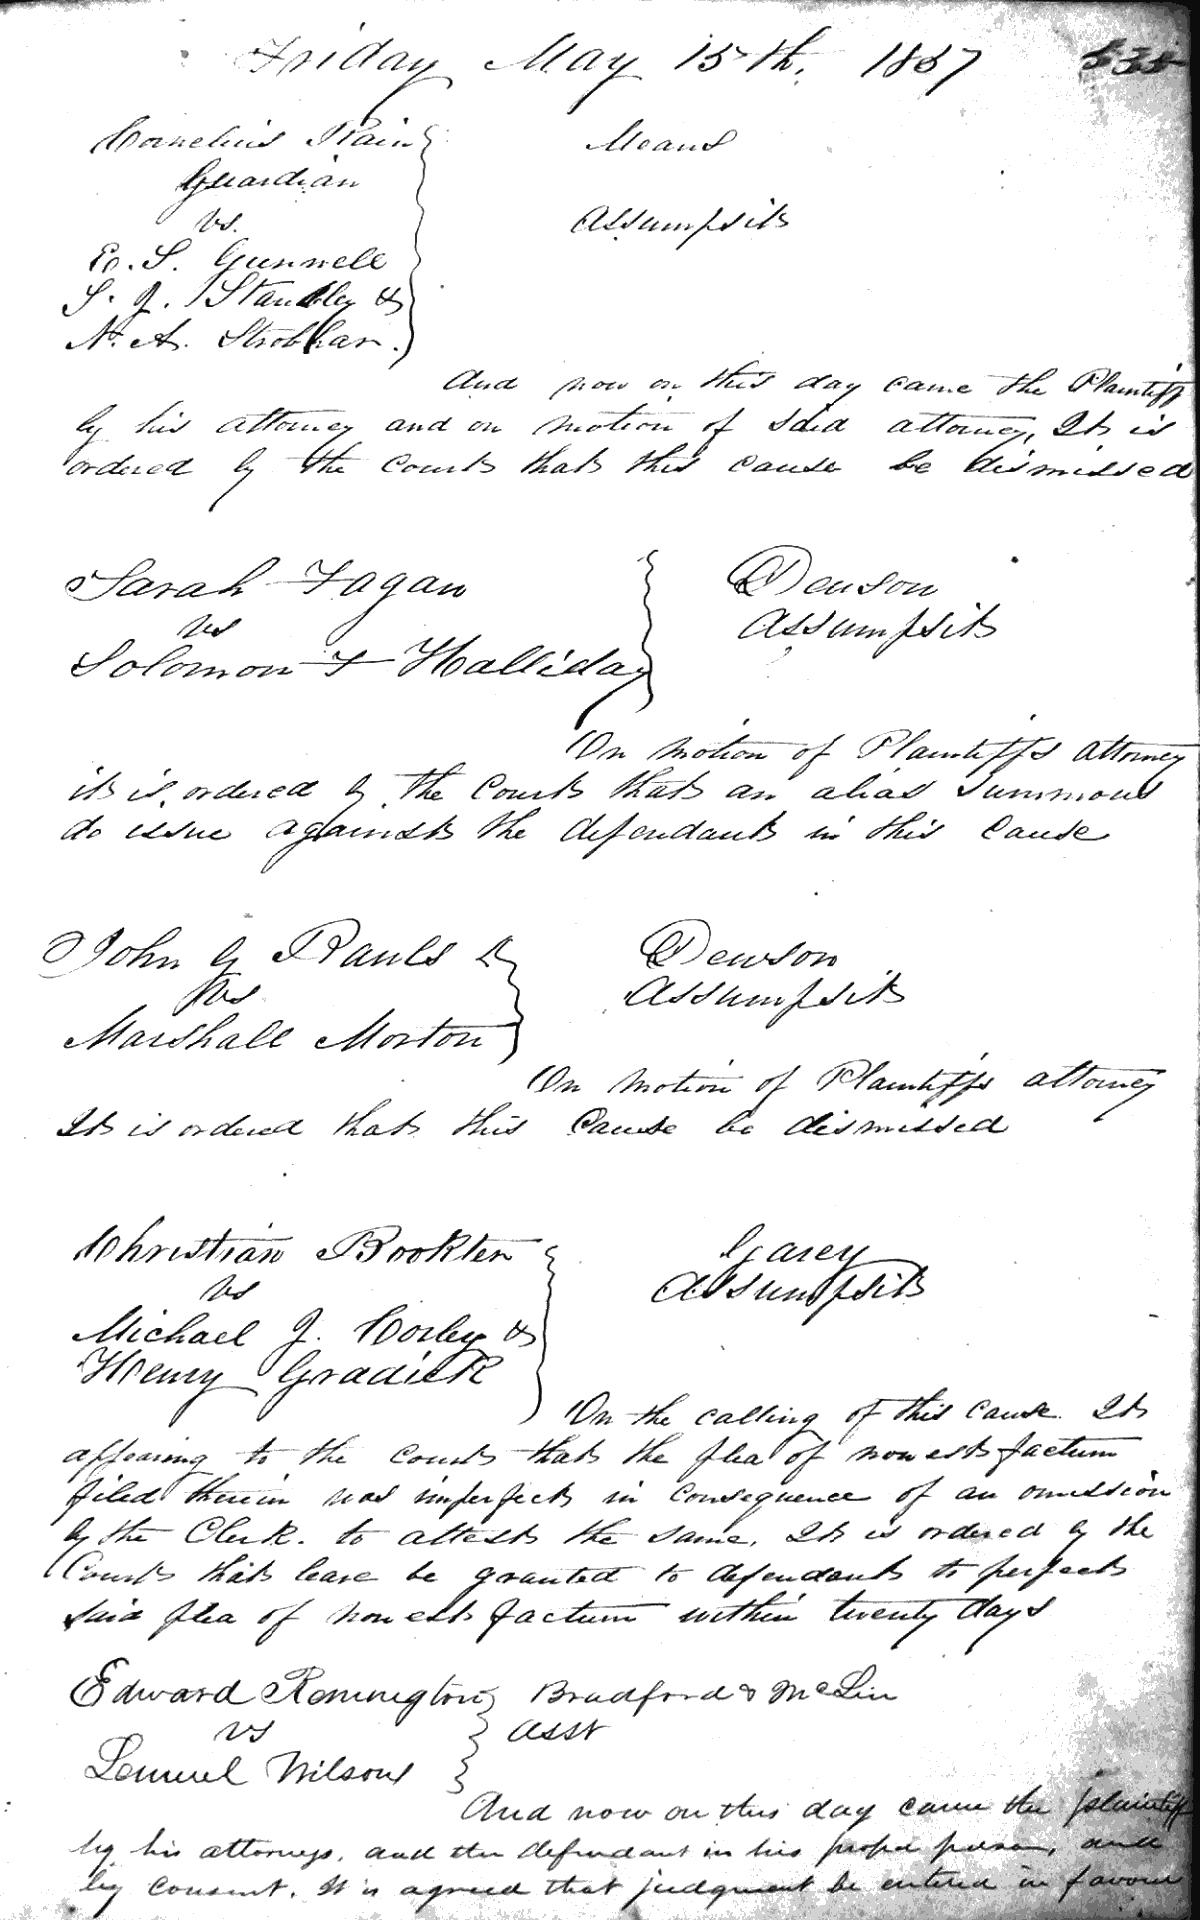 Friday May 15th. 1857 535
Cornelius Rain Means
Guardian
vs. Assumpsit
E. S. Gunnell
S. J. Standley &
N. A. Strobhar.
And now on this day came the Plaintiff
by his attorney and on motion of said attorney, It is
ordered by the Court that this cause be dismissed
Sarah Fagan Denson
vs Assumpsit
Solomon F Halliday
On motion of Plaintiffs attorney
it is ordered by the Court that an alias Summons
do issue against the defendant in this cause
John G Rauls Denson
vs Assumpsit
Marshall Morton
On motion of Plaintiffs attorney
It is ordered that this Cause be dismissed
Christian Bookter Garey
vs Assumpsit
Michael J. Corley &
Henry Gradick
On the calling of this cause. It
appearing to the Court that the plea of non est factum
filed therein was imperfect in consequence of an omission
by the Clerk. to attest the same. It is ordered by the
Court that leave be granted to defendant to perfect
said plea of non est factum within twenty days
Edward Remington Bradford & McLin
vs Asst
Lemuel Wilson
And now on this day came the plaintiff
by his attorneys, and the defendant in his proper person, and
by consent. It is agreed that judgment be entered in favour